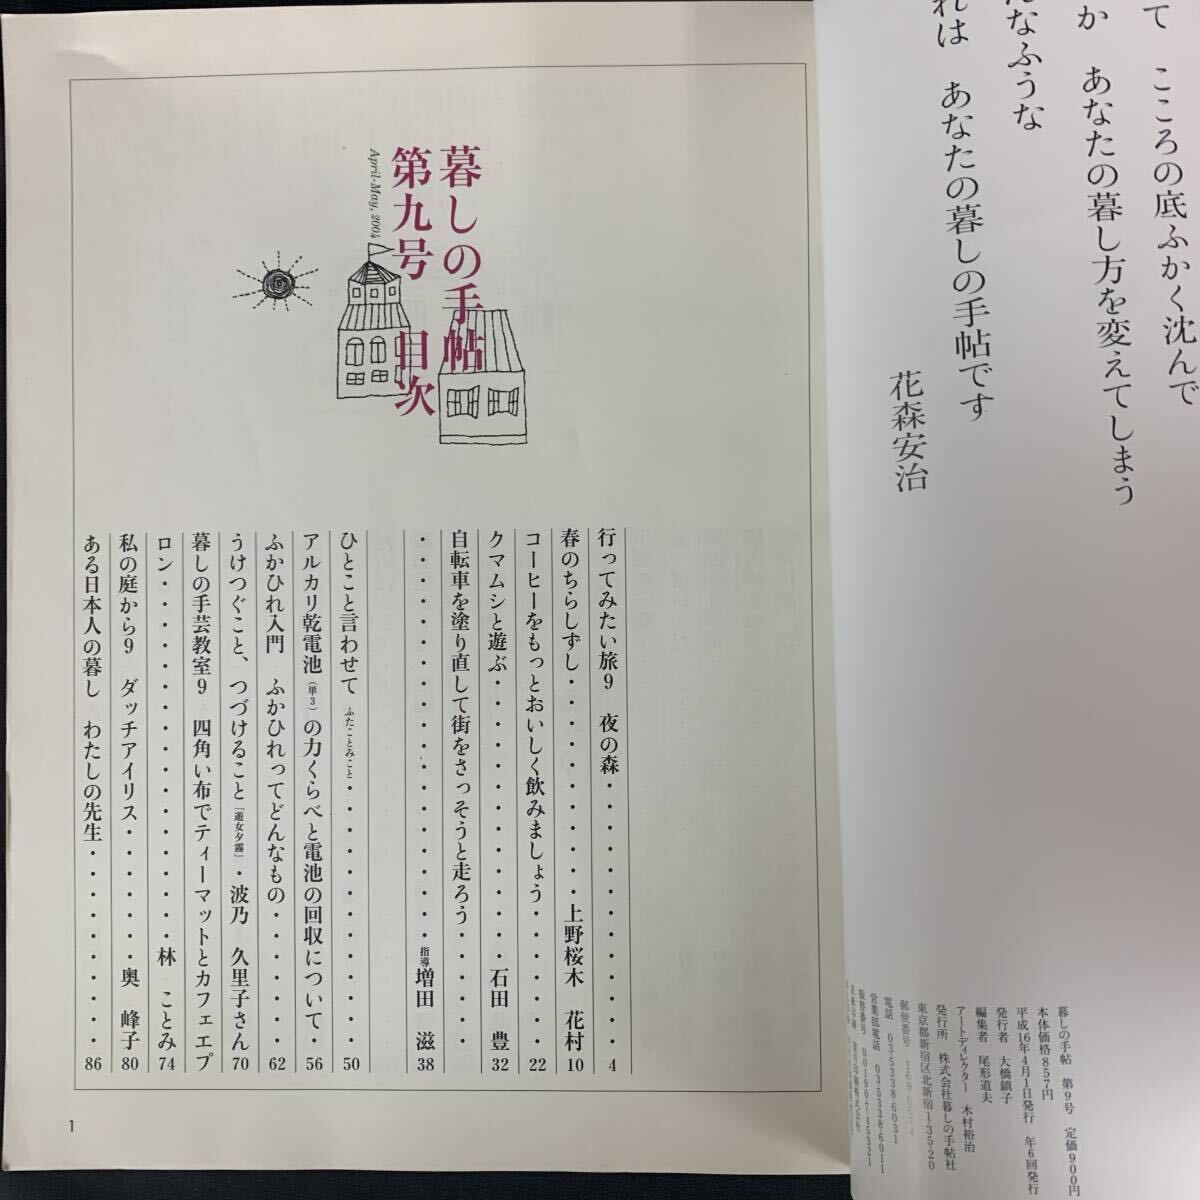 て　こころの底ふかく沈んで
か　あなたの暮し方を変えてしまう
んなふうな
れは　あなたの暮しの手帖です
花森安治
暮しの手帖　第9号　定価900円
本体価格857円
平成16年4月1日発行　年6回発行
発行者　大橋鎮子
編集者　尾形道夫
アートディレクター　木村裕治
発行所　株式会社暮しの手帖社
東京都新宿区北新宿1-35-20
郵便番号　169-0074
電話　03-5338-6031
営業部電話　03-5338-6011
振替番号　00190-7-45321
暮しの手帖
第九号　目次
April-May, 2004
行ってみたい旅9　夜の森・・・・・・・・・・・・4
春のちらしずし・・・・・・・・上野桜木　花村 10
コーヒーをもっとおいしく飲みましょう・・・・・・22
クマムシと遊ぶ・・・・・・・・・・石田　豊 32
自転車を塗り直して街をさっそうと走ろう・・・・・・
・・・・・・・・・・・・・・指導 増田　滋 38
ひとこと言わせて ふたことみこと・・・・・・・・・・50
アルカリ乾電池（単3）の力くらべと電池の回収について・56
ふかひれ入門　ふかひれってどんなもの・・・・・・62
うけつぐこと、つづけること「遊女夕霧」・波乃　久里子さん 70
暮しの手芸教室9　四角い布でティーマットとカフェエプ
ロン・・・・・・・・・・・・・・林　ことみ 74
私の庭から9　ダッチアイリス・・・・・・奥　峰子 80
ある日本人の暮し　わたしの先生・・・・・・・・・86
1